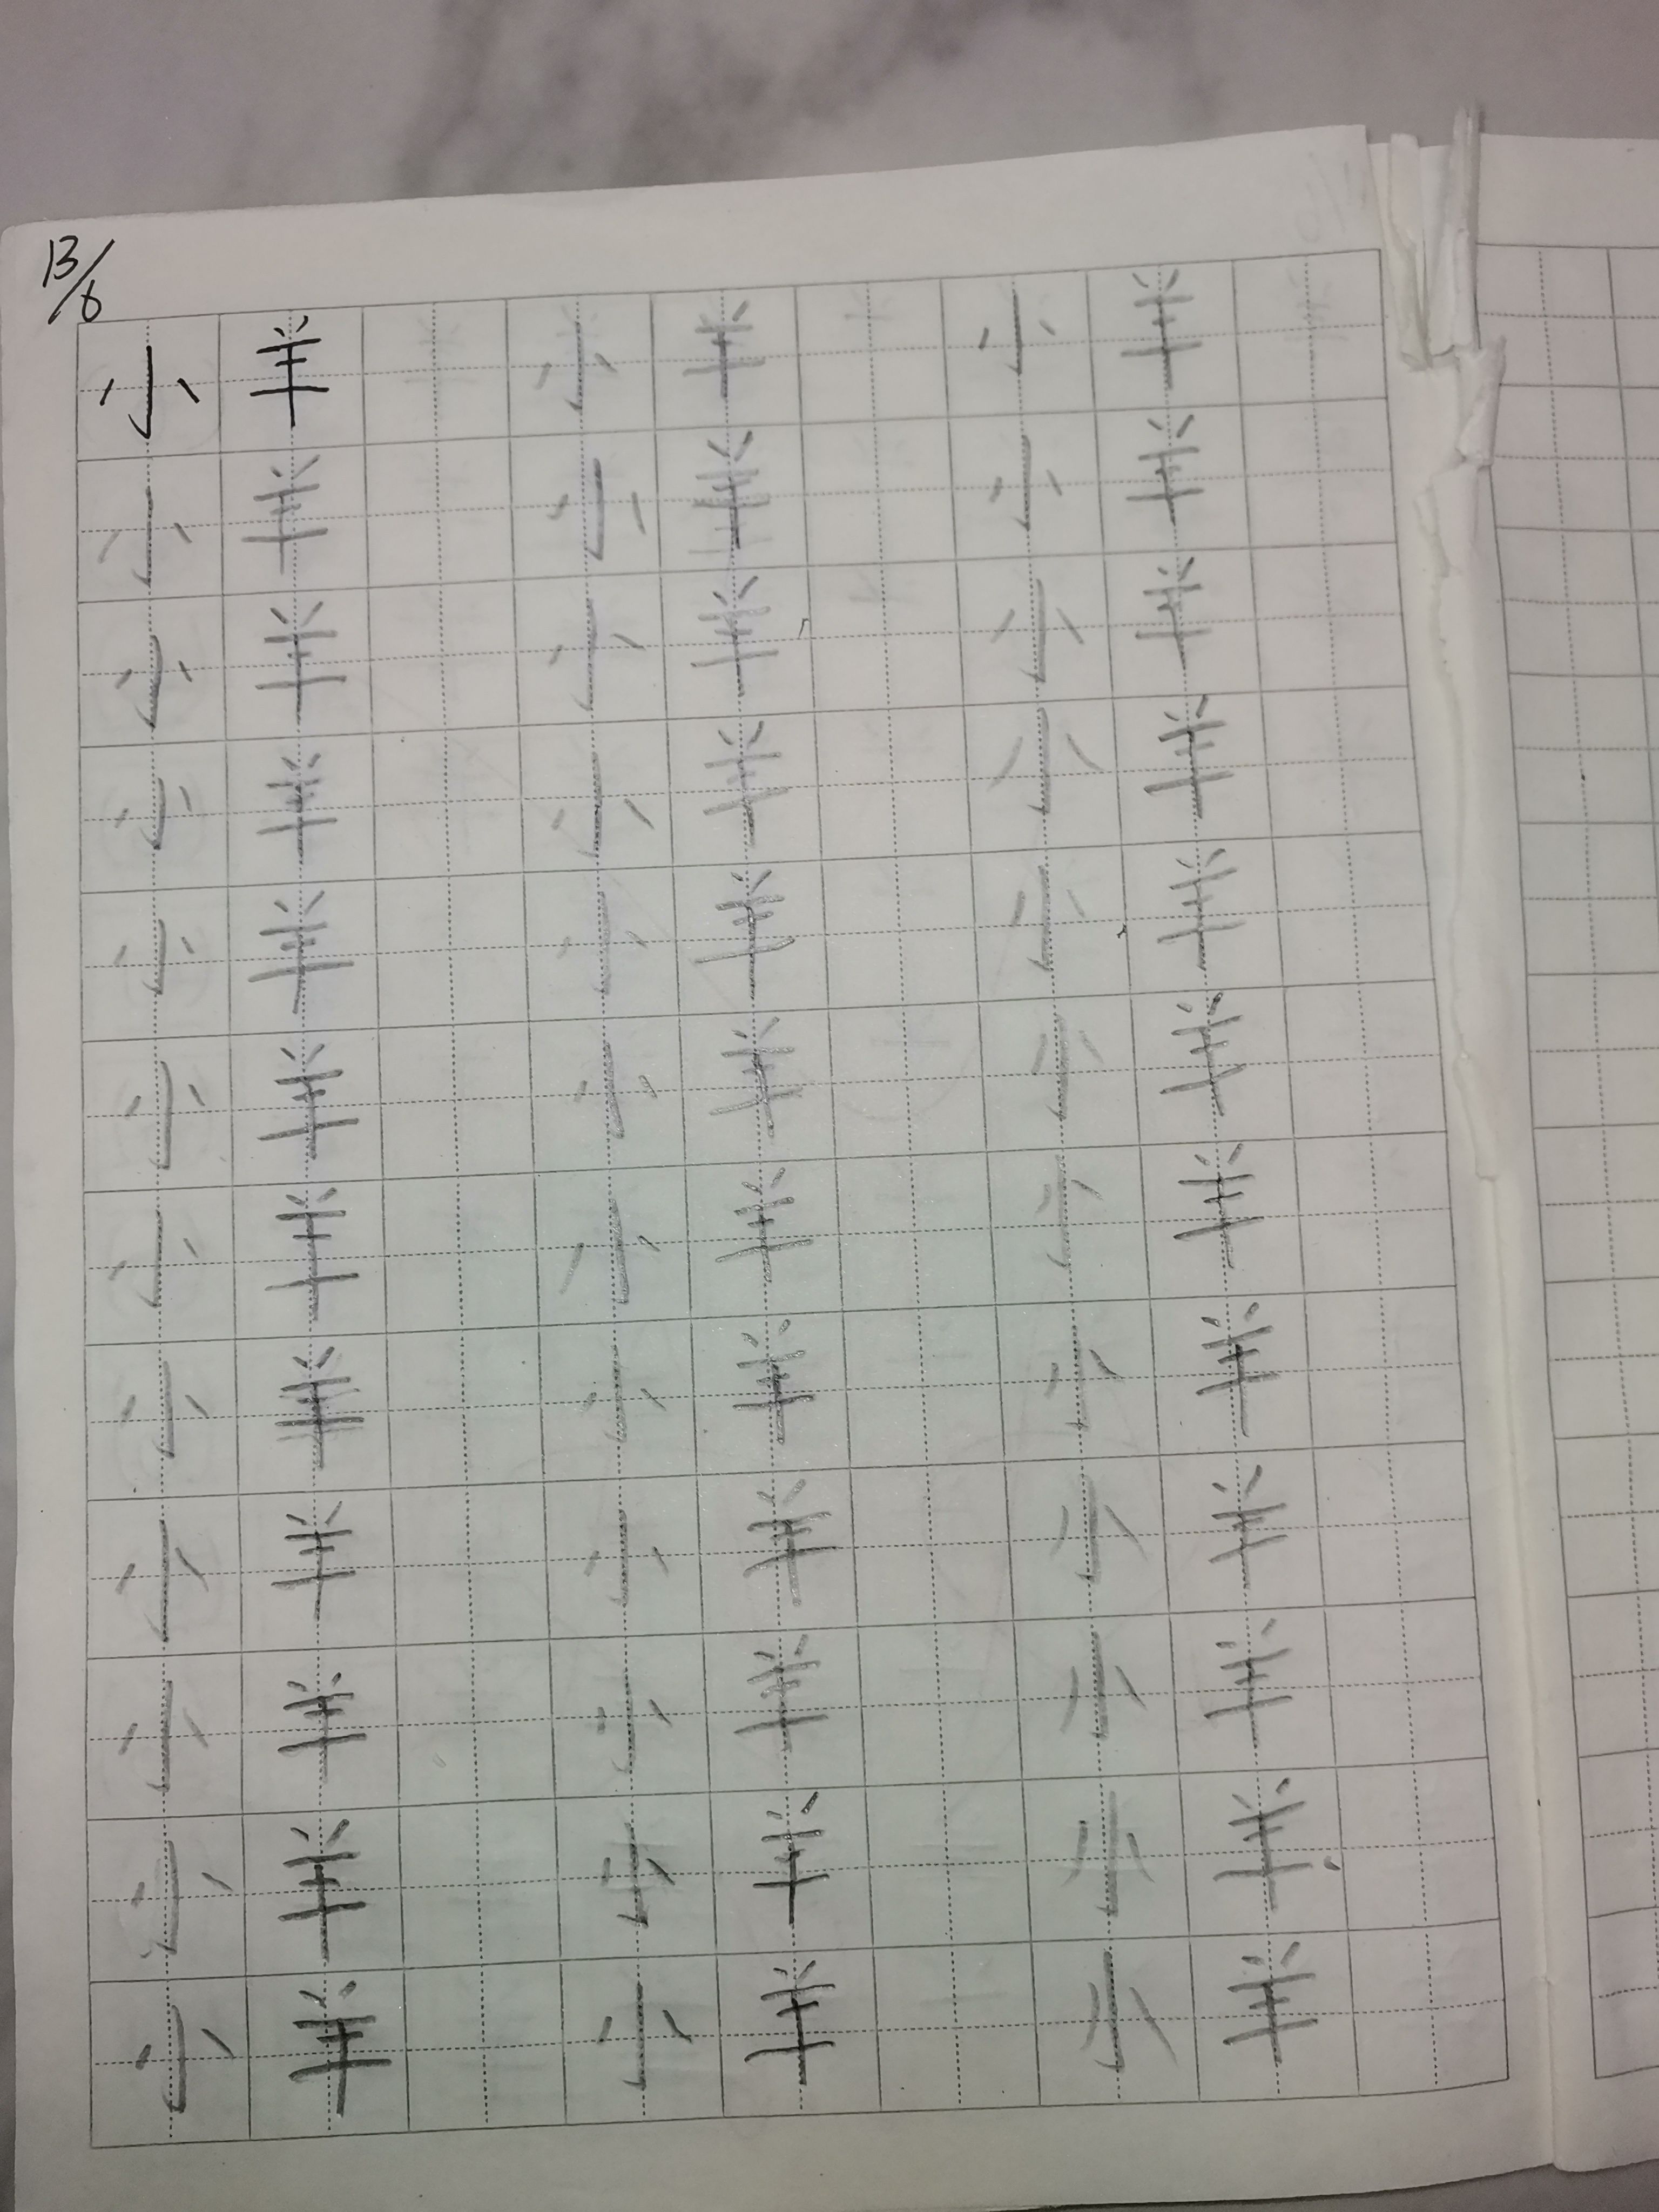 13/6
小 羊 小 羊 小 羊
小 羊 小 羊 小 羊
小 羊 小 羊 小 羊
小 羊 小 羊 小 羊
小 羊 小 羊 小 羊
小 羊 小 羊 小 羊
小 羊 小 羊 小 羊
小 羊 小 羊 小 羊
小 羊 小 羊 小 羊
小 羊 小 羊 小 羊
小 羊 小 羊 小 羊
小 羊 小 羊 小 羊